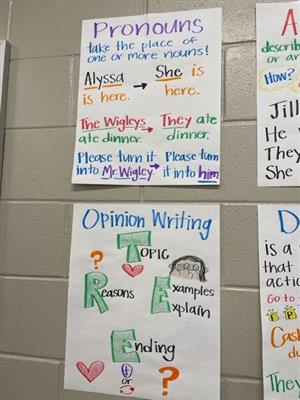 Pronouns
take the place of
one or more nouns!
Alyssa → She is
is here. here.
The Wigleys → They ate
ate dinner. dinner.
Please turn it → Please turn
into Mr. Wigley it into him
Opinion Writing
Topic
?
Reasons Examples
Explain
Ending
+
or
?
A
describ
or a
How?
Jill
He
They
She
D
is a
that
actio
Go to
Cas
du
They